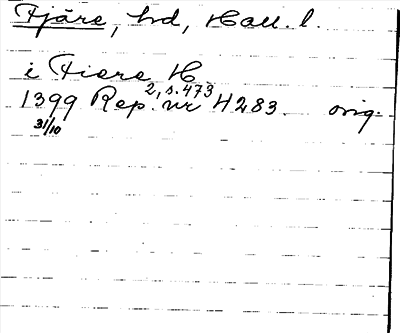 Fjäre, hd, Hall. l.
i Fiere H
2, s. 473
1399 Rep. nr 4283. orig.
31/10